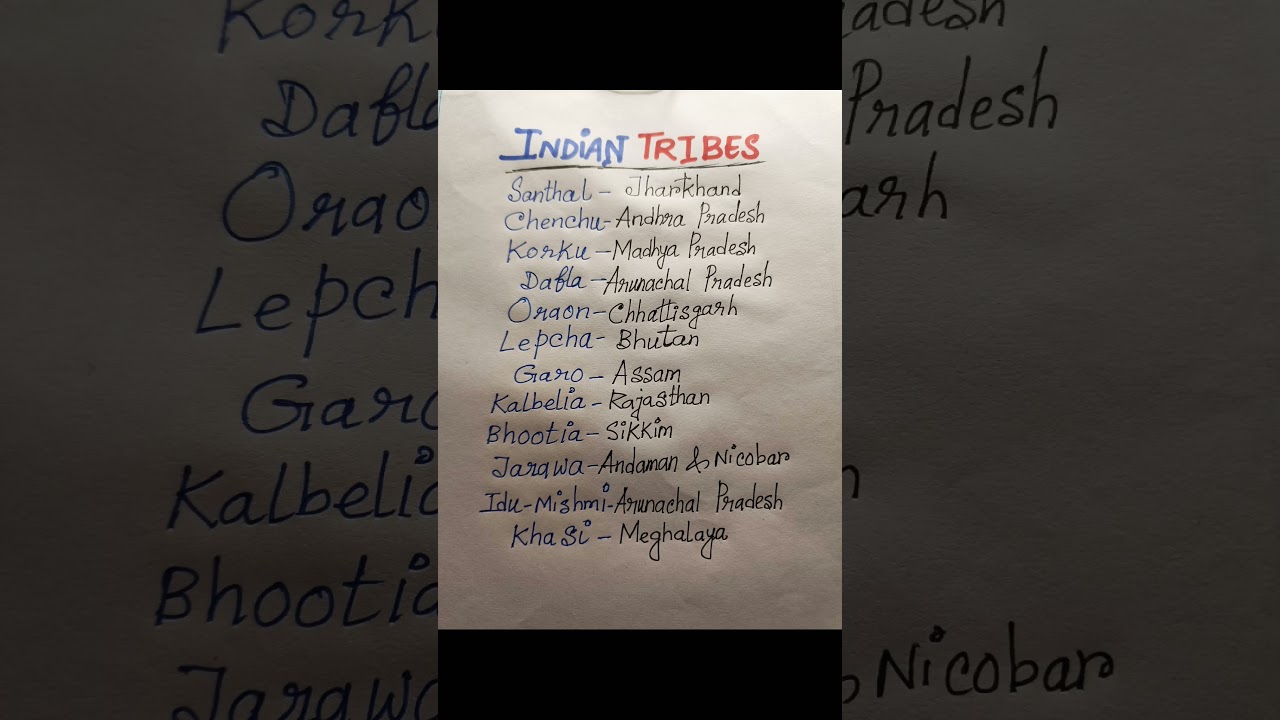 INDIAN TRIBES
Santhal - Jharkhand
Chenchu - Andhra Pradesh
Korku - Madhya Pradesh
Dafla - Arunachal Pradesh
Oraon - Chhattisgarh
Lepcha - Bhutan
Garo - Assam
Kalbelia - Rajasthan
Bhootia - Sikkim
Jarawa - Andaman & Nicobar
Idu-Mishmi - Arunachal Pradesh
Khasi - Meghalaya